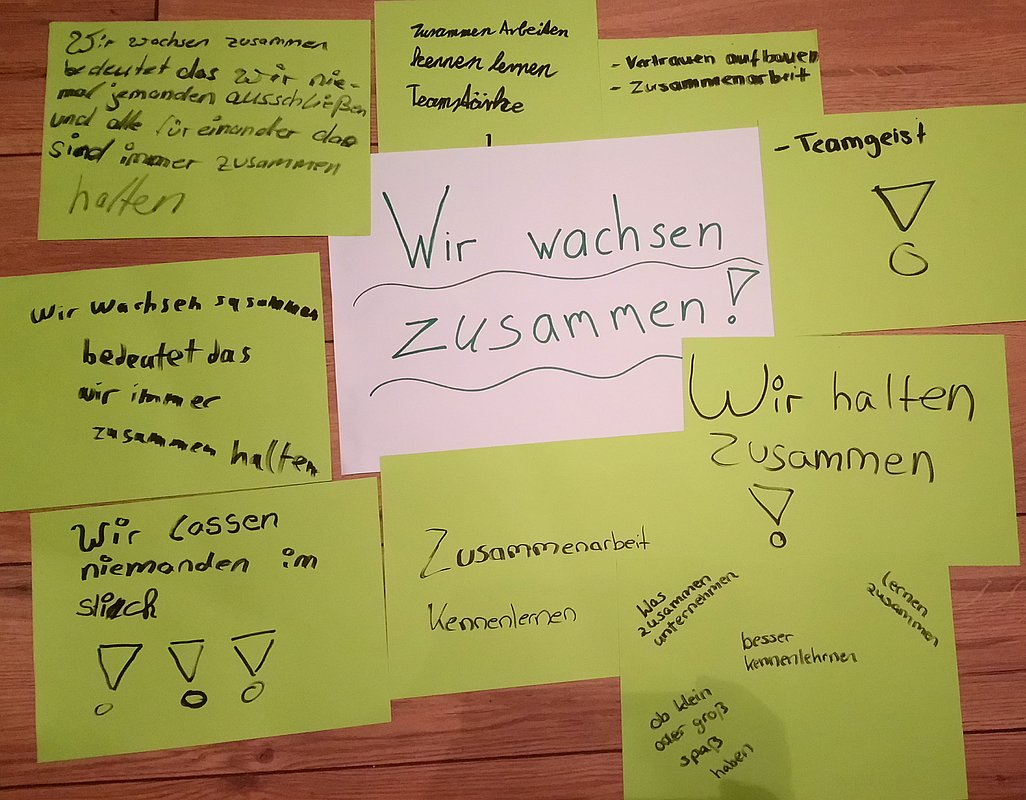 Wir wachsen zusammen
bedeutet das Wir nie-
mal jemanden ausschließen
und alle für einander das
sind immer zusammen
halten
zusammen Arbeiten
kennen lernen
Teamstärke
!
- Vertrauen aufbauen
- Zusammenarbeit
- Teamgeist
!
Wir wachsen
zusammen!
Wir wachsen susammen
bedeutet das
wir immer
zusammen halten
Wir halten
zusammen
!
Wir lassen
niemanden im
stich
! ! !
Zusammenarbeit
Kennenlernen
Was
zusammen
unternehmen
lernen
zusammen
besser
kennenlehrnen
ob klein
oder groß
spaß
haben